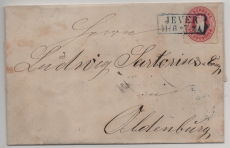 JEVER
Herrn
Ludwig Sartorius
Oldenburg